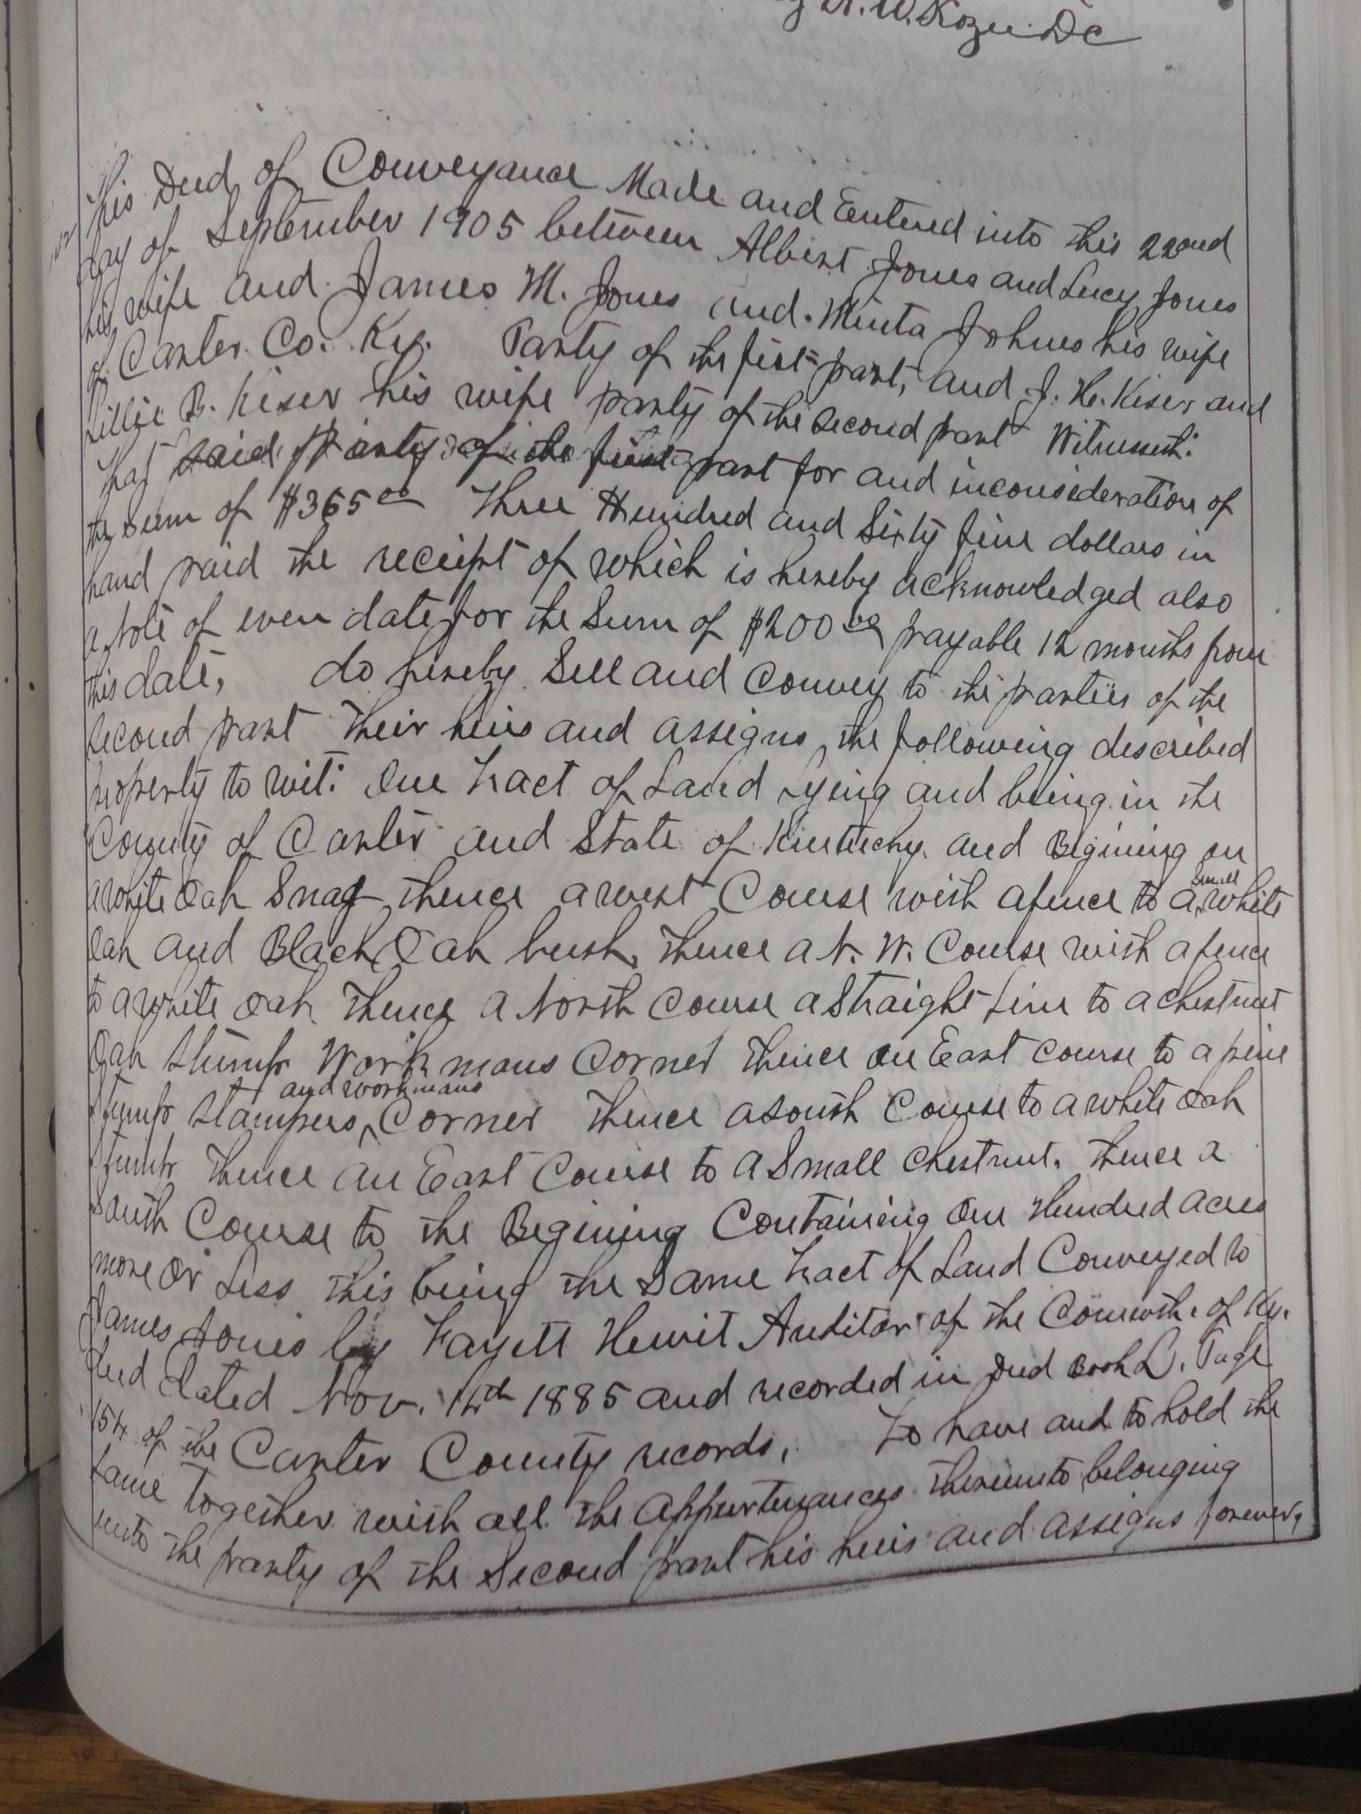 by A. W. Kozee DC
This Deed of Conveyance Made and Entered into this 22ond
day of September 1905 between Albert Jones and Lucy Jones
his wife and James M. Jones and Minta Johnes his wife
of Carter Co. Ky. Party of the first part, and J. H. Kiser and
Lillie B. Kiser his wife party of the second part Witnesseth:
That said Party of the first part for and inconsideration of
the sum of $365 00 Three Hundred and Sixty five dollars in
hand paid the receipt of which is hereby acknowledged also
a Note of even date for the Sum of $200 00 payable 12 months from
this date, do hereby Sell and convey to the parties of the
second part Their heirs and assigns, the following described
property to wit: One tract of Land Lying and being in the
County of Carter and State of Kentucky and Begining on
a white Oak Snag thence a west Course with a fence to a small white
Oak and Black Oak bush, Thence a N. W. Course with a fence
to a white Oak Thence a North Course a Straight Line to a chestnut
Oak Stump Workmans Corner Thence an East course to a pine
Stump Stampers and workmans Corner Thence a South Course to a white Oak
Stump Thence an East Course to a Small chestnut. Thence a
South Course to the Begining Containing One Hundred acres
more or Less this being the Same tract of Land Conveyed to
James Jones by Fayett Hewit Auditor of the Comwth. of Ky.
deed dated Nov. 14th 1885 and recorded in Deed Book L. Page
154 of the Carter County records. To have and to hold the
same together with all the appurtenances thereunto belonging
unto the party of the Second part his heirs and assigns forever,